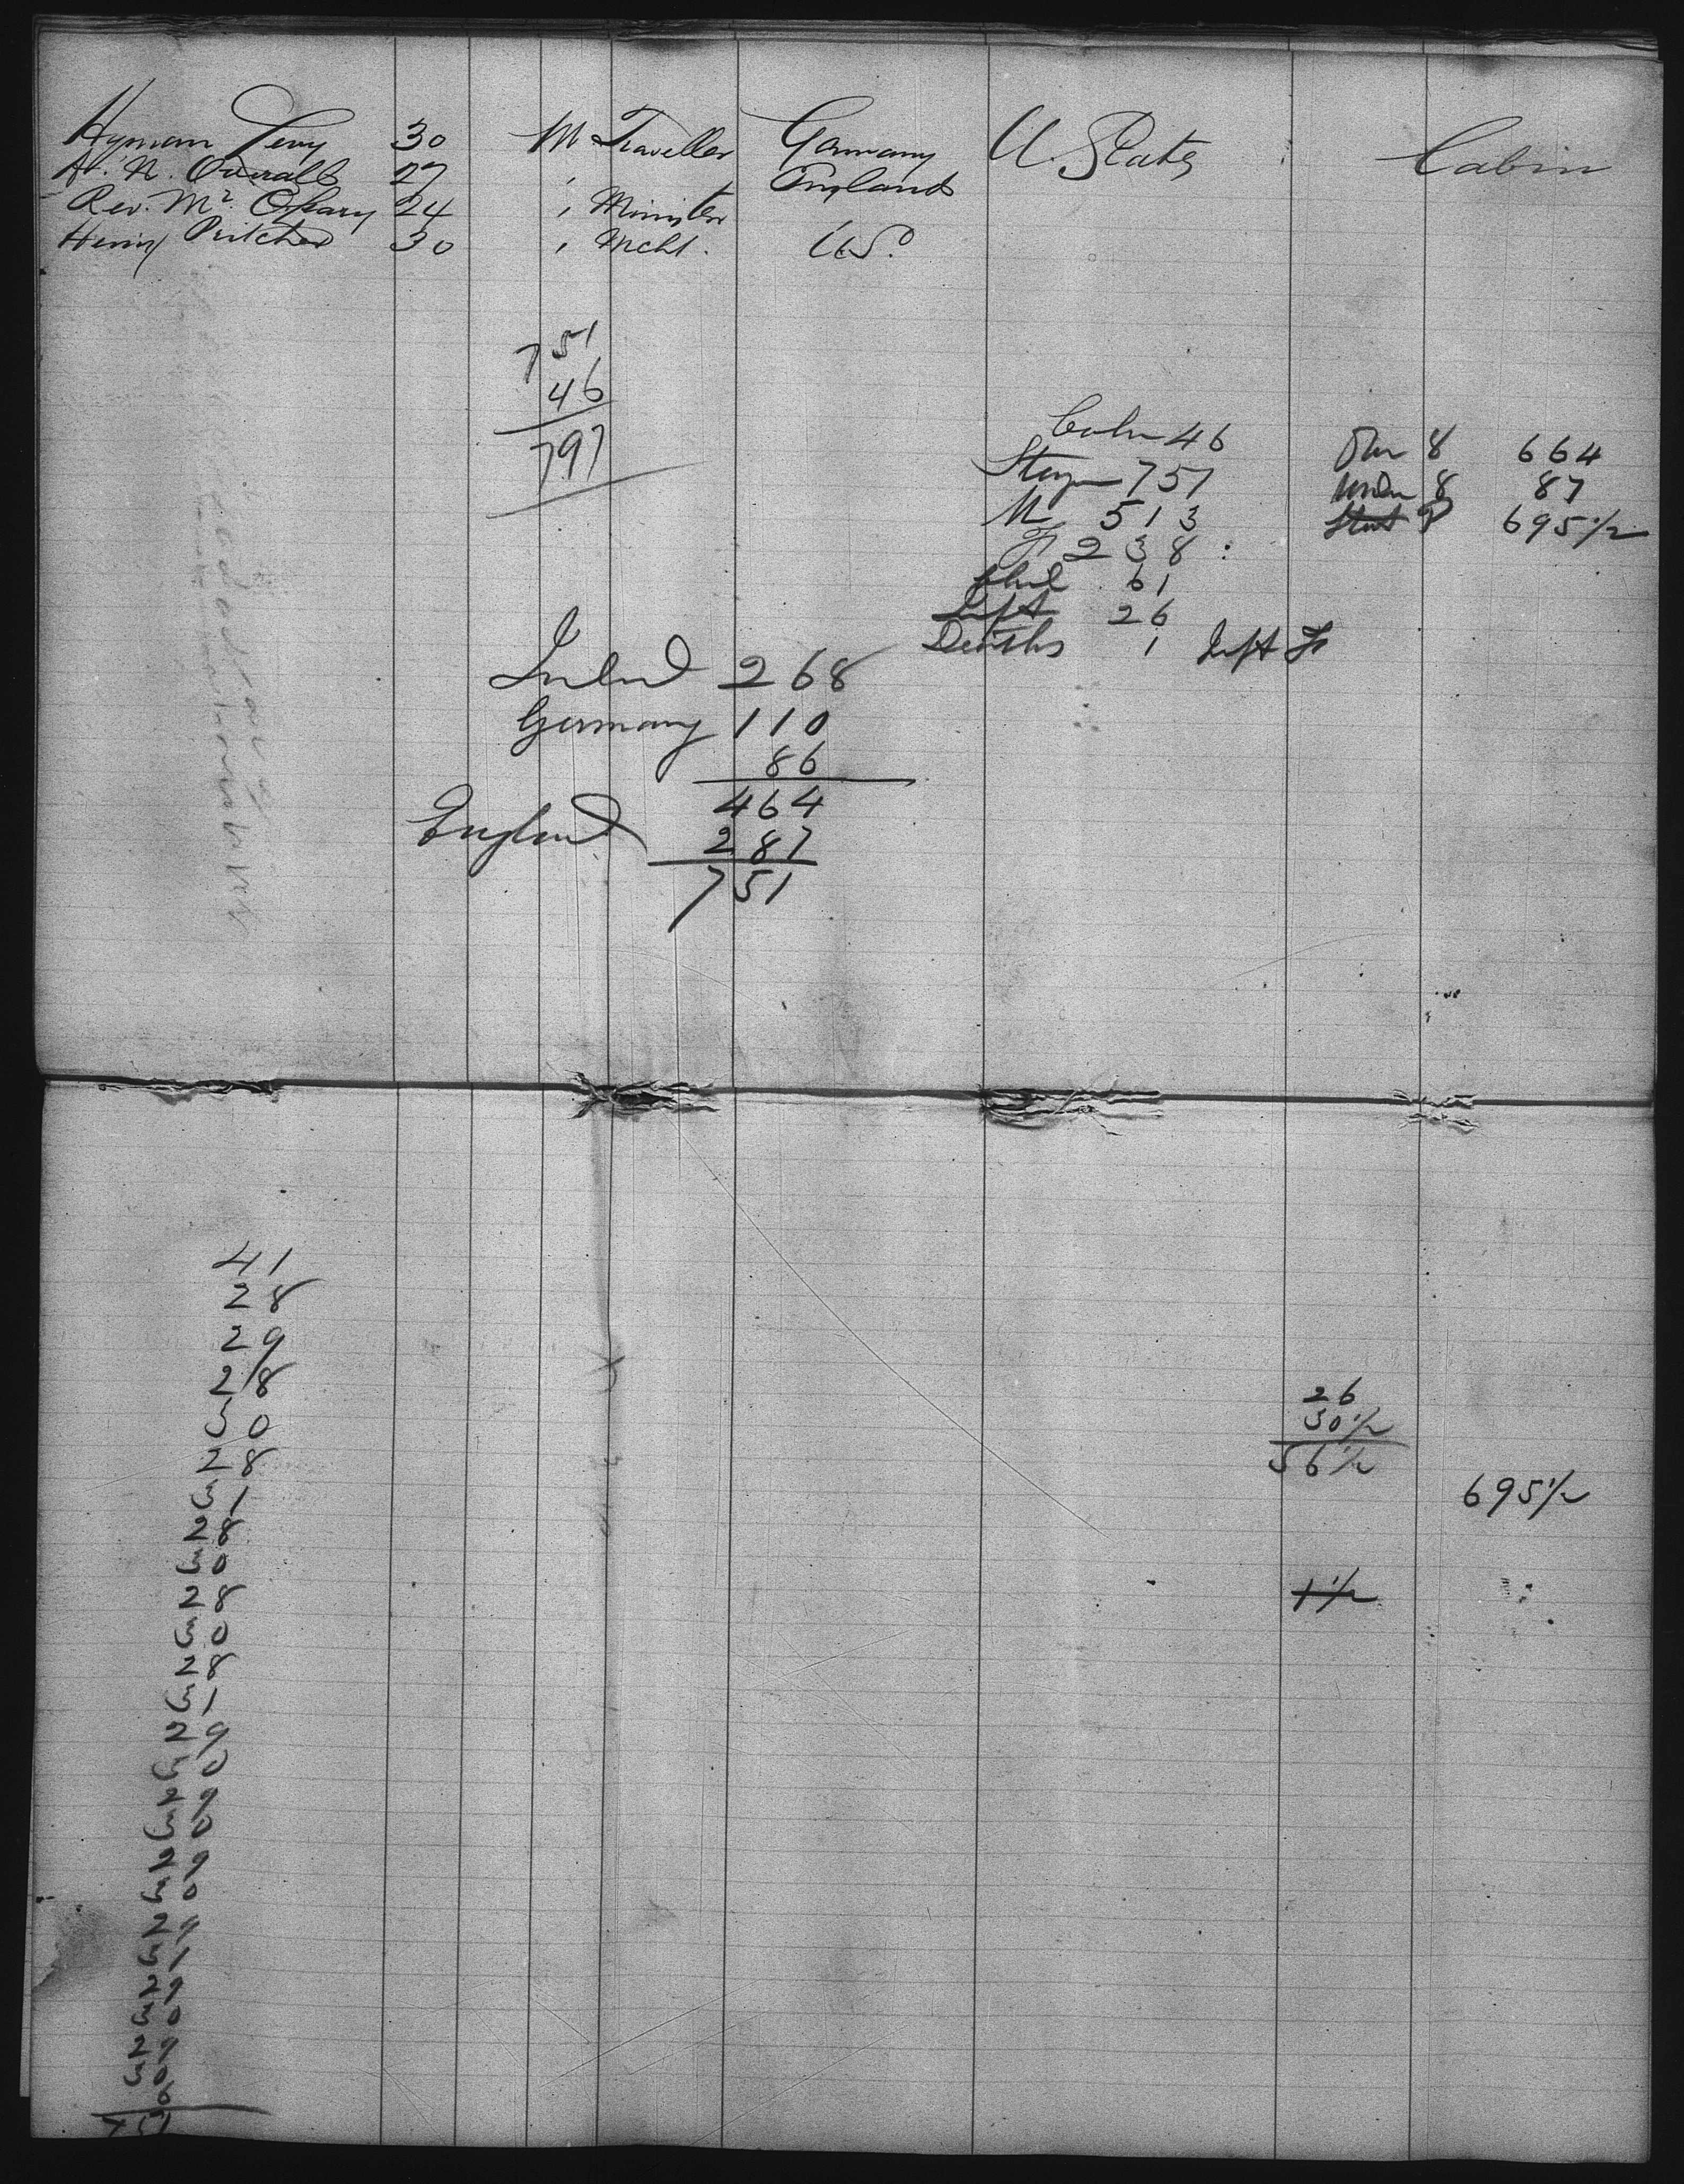 Hyman Levy 30 M Traveller Germany U. States Cabin
A. N. Overall 27 " England
Rev. Mr. O'Leary 24 " Minister
Henry Pritchard 30 " Mcht. U.S.
751
46
797
Cabin 46
Steerage 751
M 513
F 238
Chil 61
Inft 26
Deaths 1 Inft F
Over 8 664
Under 8 87
695 1/2
Ireland 268
Germany 110
86
464
England 287
751
41
28
29
28
30
28
31
28
30
28
30
28
31
29
30
29
30
29
30
29
31
29
30
29
30
26
30 1/2
56 1/2
695 1/2
1 1/2